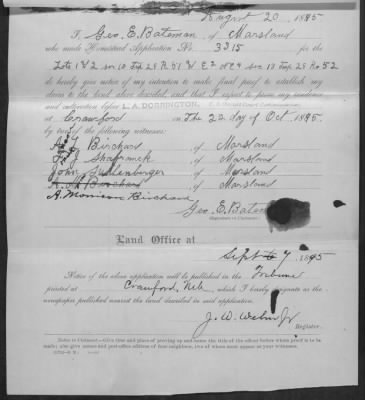 August 20 1895
I, Geo. E. Bateman, of Marsland
who made Homestead Application No. 3315 for the
Lots 1 & 2 sec 18 Twp 28 R 51 & E2 NE4 sec 13 Twp 28 R 52
do hereby give notice of my intention to make final proof to establish my
claim to the land above described, and that I expect to prove my residence
and cultivation before L. A. DORRINGTON,
at Crawford on The 22 day of Oct. 1895,
by two of the following witnesses:
A J Birchard, of Marsland
F J Shafranek, of Marsland
John, of Marsland
Birchard, of Marsland
A. Morrison Birchard
Geo. E. Bateman
(Signature of Claimant.)
Land Office at
Sept 7, 1895
Notice of the above application will be published in the Tribune
printed at Crawford, Neb, which I hereby designate as the
newspaper published nearest the land described in said application.
J. W. Wehn Jr
Register.
Notice to Claimant.—Give time and place of proving up and name the title of the officer before whom proof is to be
made; also give names and post-office address of four neighbors, two of whom must appear as your witnesses.